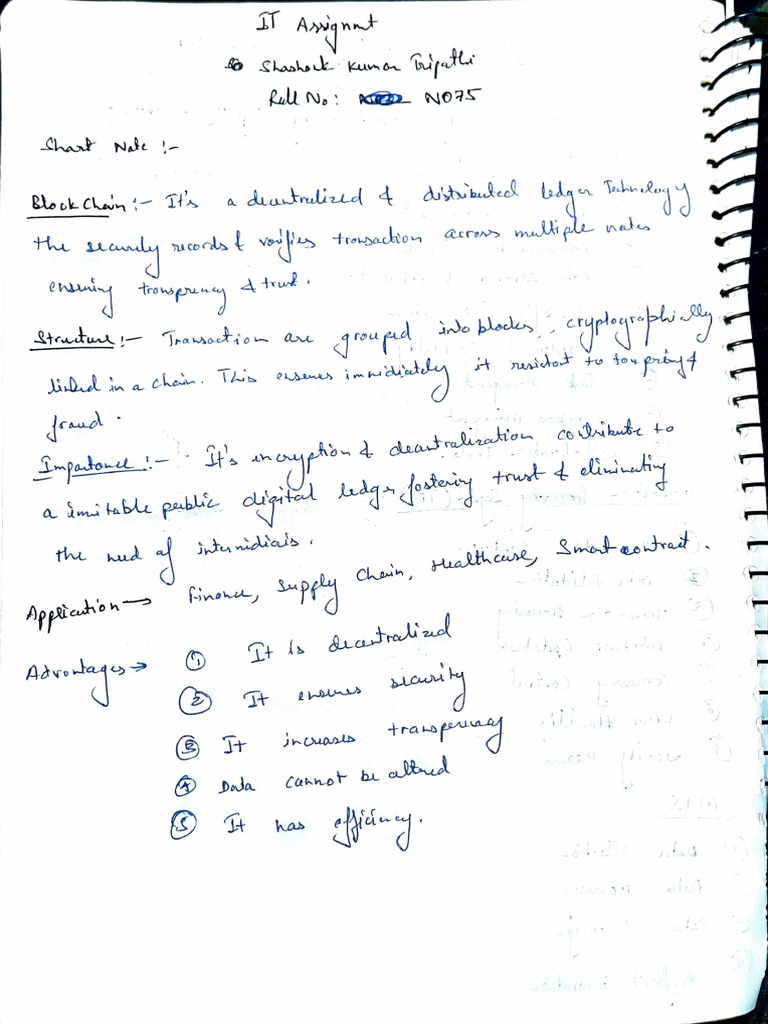 IT Assignmt
Shashank Kumar Tripathi
Roll No: N075
Short Note :-
Block Chain :- It's a decentralized & distributed ledger Technology
the securely records & verifies transaction across multiple nodes
ensuring transprency & trust.
Structure :- Transaction are grouped into blocks, cryptographically
linked in a chain. This ensures immidiately it resistant to tampring &
fraud.
Importance :- It's encryption & decentralization contribute to
a imitable public digital ledger fostering trust & eliminating
the need of internidiais.
Application → Finance, Supply Chain, Healthcare, Smart contract.
Advantages → ① It is decentralized
② It ensures security
③ It increases transperency
④ Data cannot be altered
⑤ It has efficiency.